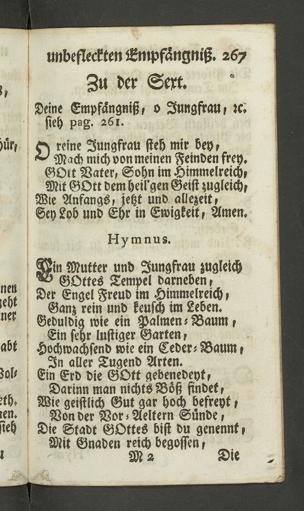 unbefleckten Empfängniß. 267
Zu der Sext.
Deine Empfängniß, o Jungfrau, ꝛc.
sieh pag. 261.
O reine Jungfrau steh mir bey,
Mach mich von meinen Feinden frey.
GOtt Vater, Sohn im Himmelreich,
Mit GOtt dem heil'gen Geist zugleich,
Wie Anfangs, jetzt und allezeit,
Sey Lob und Ehr in Ewigkeit, Amen.
Hymnus.
Ein Mutter und Jungfrau zugleich
GOttes Tempel darneben,
Der Engel Freud im Himmelreich,
Ganz rein und keusch im Leben.
Geduldig wie ein Palmen-Baum,
Ein sehr lustiger Garten,
Hochwachsend wie ein Ceder-Baum,
In aller Tugend Arten.
Ein Erd die GOtt gebenedeyt,
Darinn man nichts Böß findet,
Wie geistlich Gut gar hoch befreyt,
Von der Vor-Aeltern Sünde,
Die Stadt GOttes bist du genennt,
Mit Gnaden reich begossen,
M 2 Die